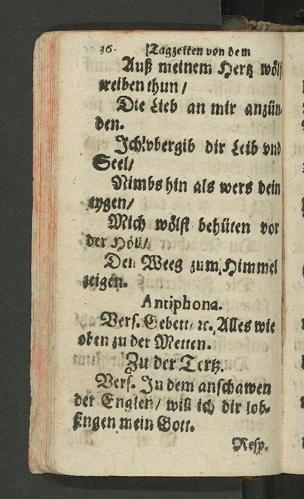 36. Tagzeiten von dem
Auß meinem Hertz wölst
treiben thun/
Die Lieb an mir anzün-
den.
Ich vbergib dir Leib vnd
Seel/
Nimbs hin als wers dein
aygen/
Mich wölst behüten vor
der Höll/
Den Weeg zum Himmel
zeigen.
Antiphona.
Vers. Gebett/ ꝛc. Alles wie
oben zu der Metten.
Zu der Tertz.
Vers. In dem anschawen
der Englen/ will ich dir lob-
singen mein Gott.
Resp.